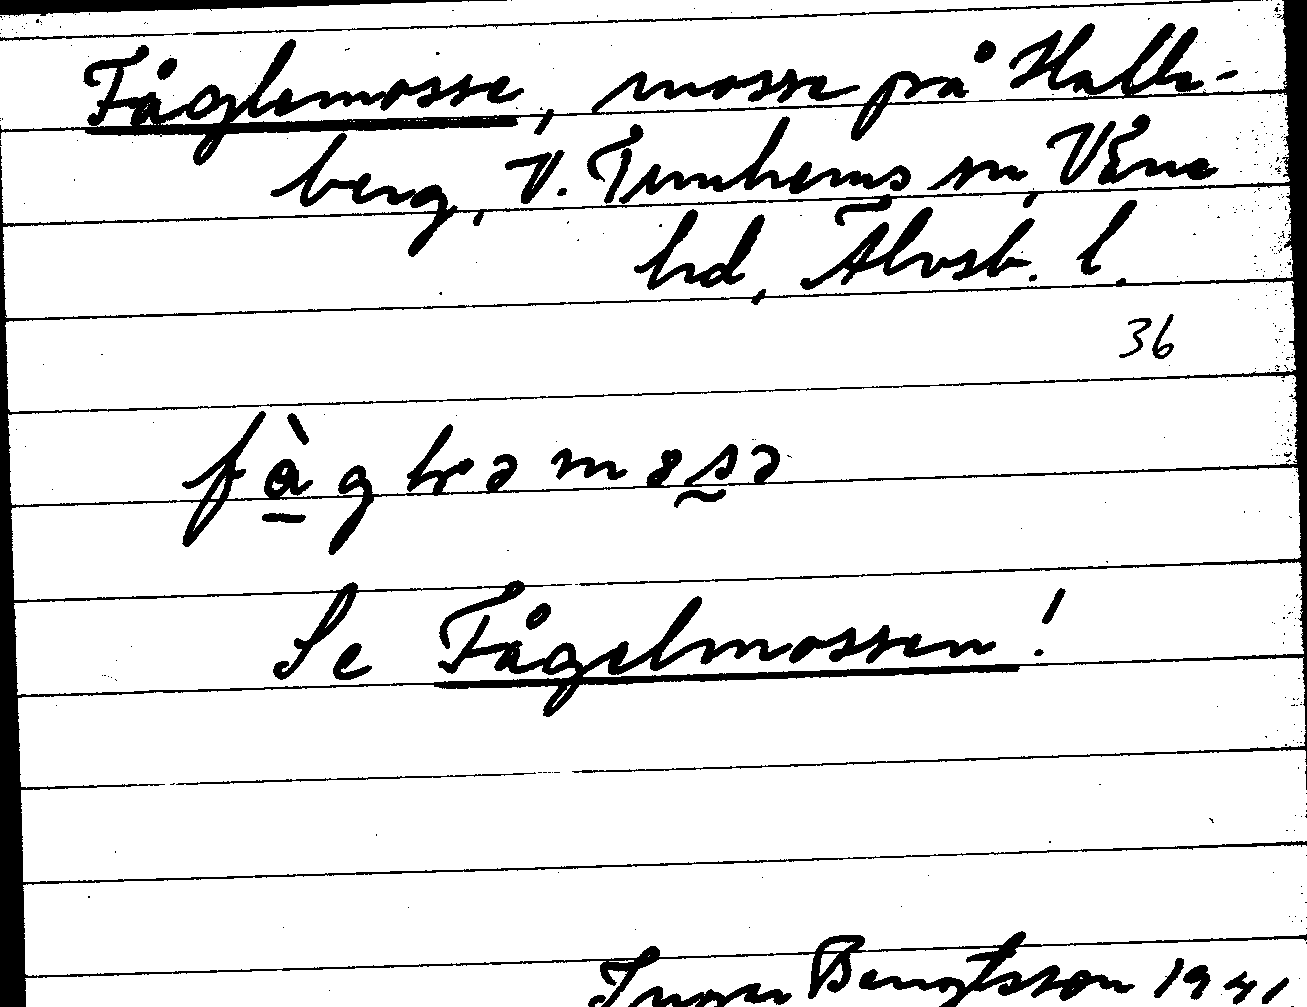 Fåglemosse, mosse på Halle-
berg, V. Tunhems sn, Väne
hd, Älvsb. l.
36
Se Fågelmossen!
Bengtsson 1941